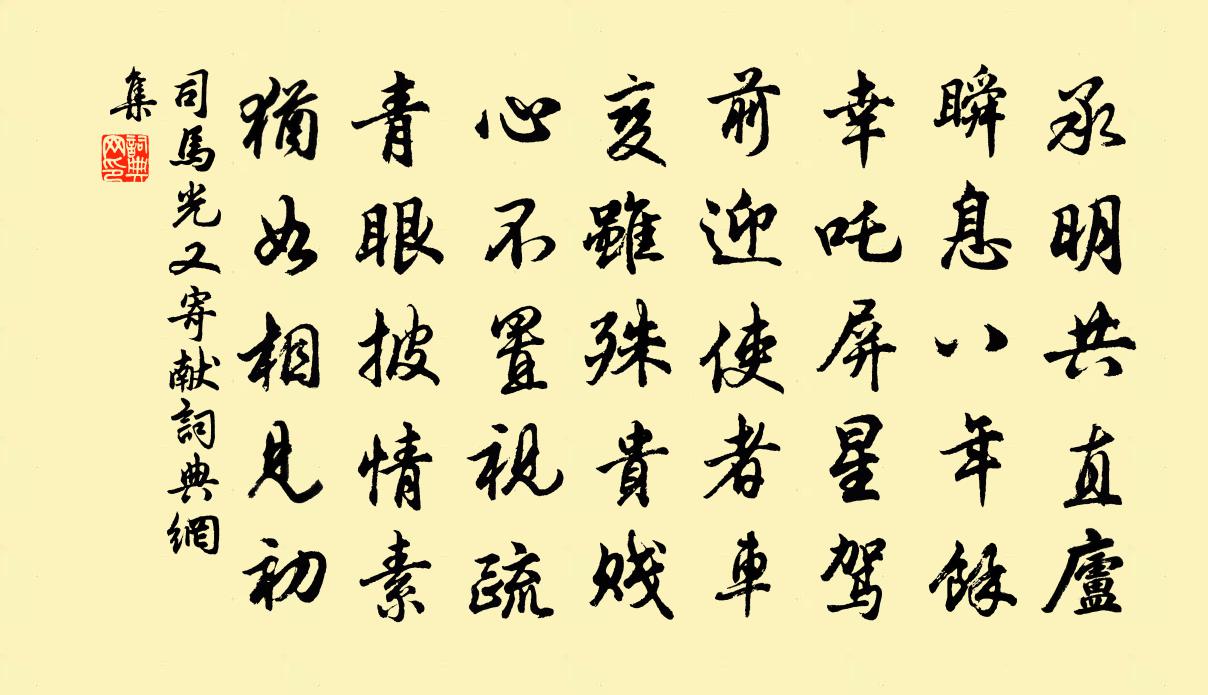 承明共直廬
瞬息八年餘
幸吒屏星駕
前迎使者車
変雖殊貴賎
心不置視疏
青眼披情素
猶如相見初
司馬光又寄献詞典網
集
詞典網印